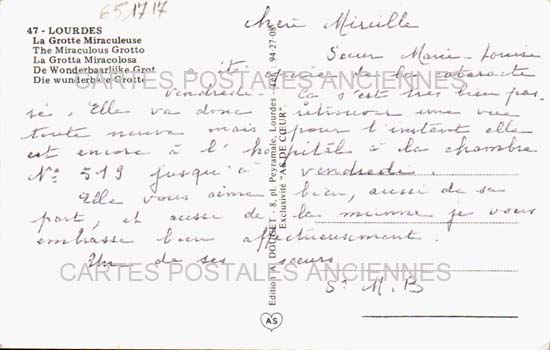 65/17.17
47 - LOURDES
La Grotte Miraculeuse
The Miraculous Grotto
La Grotta Miracolosa
De Wonderbaarlijke Grot
Die wunderbare Grotte
Chère Mireille
Soeur Marie-Louise
a été opérée de la cataracte
vendredi - ça s'est très bien pas-
sé. Elle va donc retrouver une vue
toute neuve mais pour l'instant elle
est encore à l'hôpital à la chambre
N° 519 jusqu'à vendredi.
Elle vous aime bien, aussi de sa
part, et aussi de la mienne je vous
embrasse bien affectueusement.
Une de ses soeurs
Sr M. B
Edition A. DOUCET - 8, pl. Peyramale, Lourdes - Tél. : 94-27-08
Exclusivité "AS DE CŒUR"
AS
CARTES POSTALES ANCIENNES
CARTES POSTALES ANCIENNES